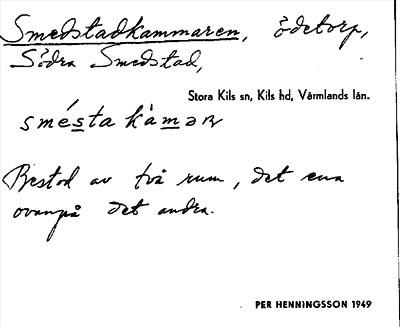 Smedstadkammaren, ödetorp,
Södra Smedstad,
Stora Kils sn, Kils hd, Värmlands län.
smésta kàmaɴ
Bestod av två rum, det ena
ovanpå det andra.
PER HENNINGSSON 1949